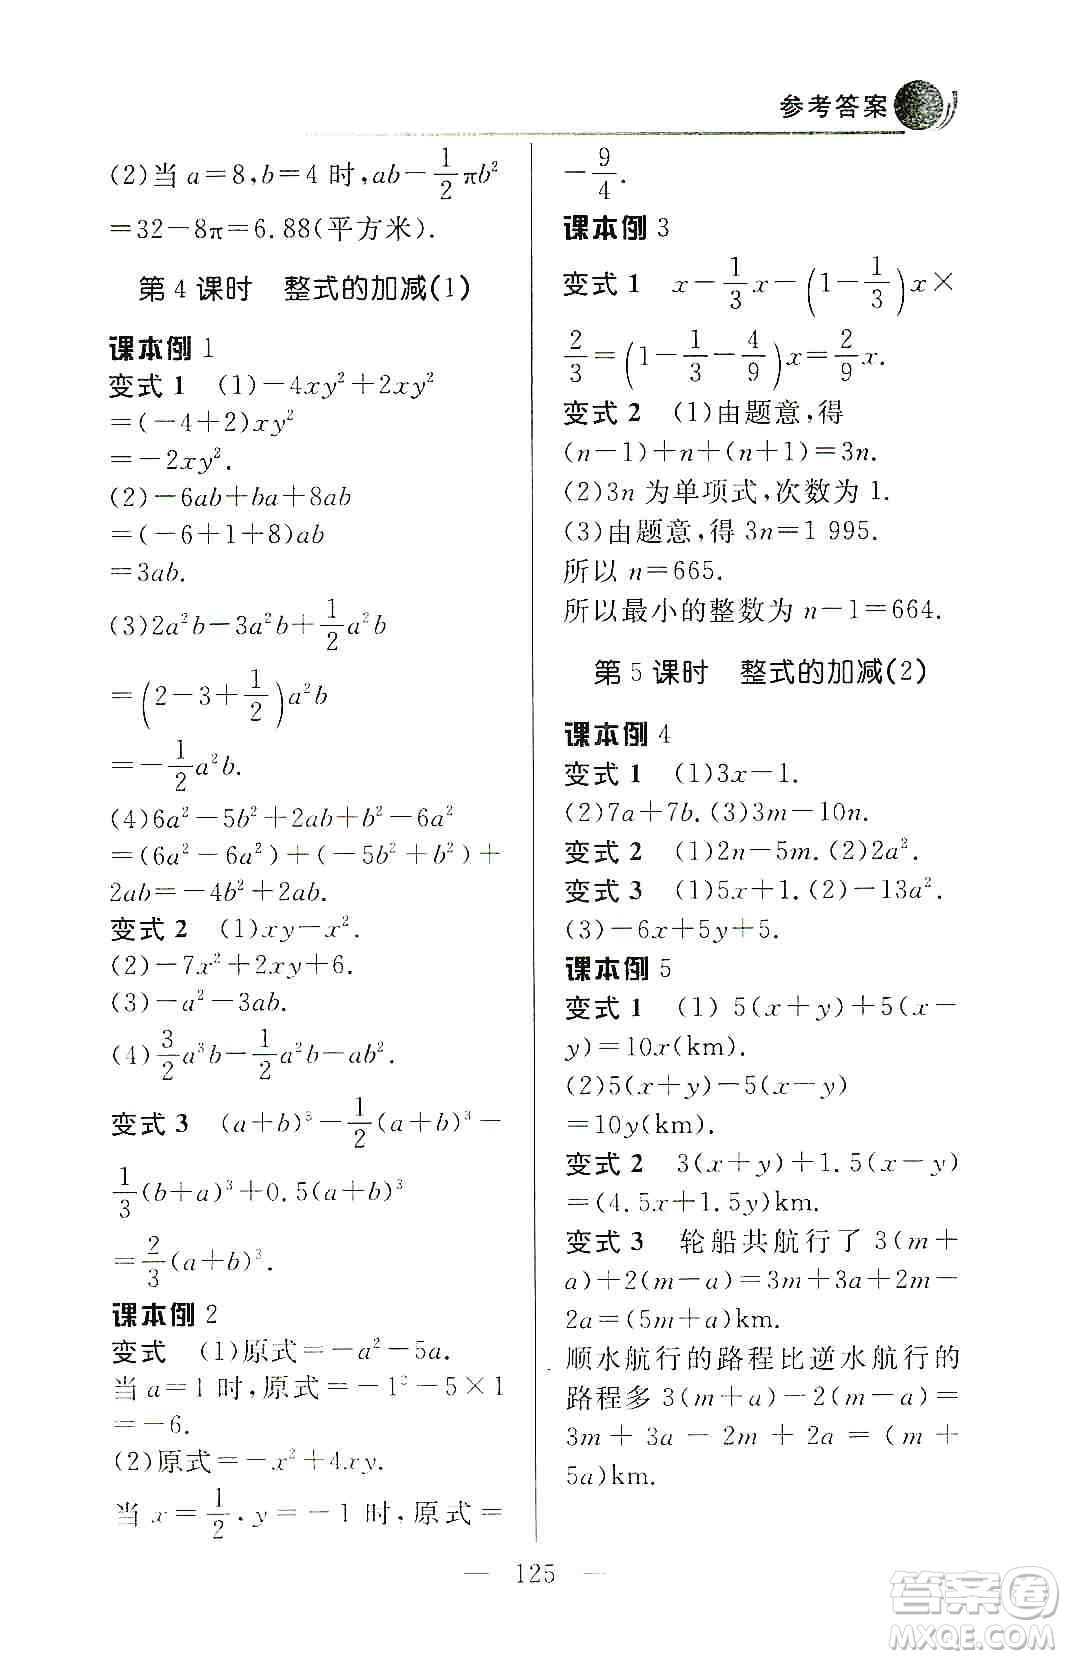 参考答案
(2)当 a=8,b=4 时,ab-\frac{1}{2}πb²
=32-8π=6.88(平方米).
第 4 课时 整式的加减(1)
课本例 1
变式 1 (1)-4xy²+2xy²
=(-4+2)xy²
=-2xy².
(2)-6ab+ba+8ab
=(-6+1+8)ab
=3ab.
(3)2a²b-3a²b+\frac{1}{2}a²b
=(2-3+\frac{1}{2})a²b
=-\frac{1}{2}a²b.
(4)6a²-5b²+2ab+b²-6a²
=(6a²-6a²)+(-5b²+b²)+
2ab=-4b²+2ab.
变式 2 (1)xy-x².
(2)-7x²+2xy+6.
(3)-a²-3ab.
(4)\frac{3}{2}a³b-\frac{1}{2}a²b-ab².
变式 3 (a+b)³-\frac{1}{2}(a+b)³-
\frac{1}{3}(b+a)³+0.5(a+b)³
=\frac{2}{3}(a+b)³.
课本例 2
变式 (1)原式=-a²-5a.
当 a=1 时,原式=-1²-5×1
=-6.
(2)原式=-x²+4xy.
当 x=\frac{1}{2},y=-1 时,原式=
-\frac{9}{4}.
课本例 3
变式 1 x-\frac{1}{3}x-(1-\frac{1}{3})x×
\frac{2}{3}=(1-\frac{1}{3}-\frac{4}{9})x=\frac{2}{9}x.
变式 2 (1)由题意,得
(n-1)+n+(n+1)=3n.
(2)3n 为单项式,次数为 1.
(3)由题意,得 3n=1 995.
所以 n=665.
所以最小的整数为 n-1=664.
第 5 课时 整式的加减(2)
课本例 4
变式 1 (1)3x-1.
(2)7a+7b.(3)3m-10n.
变式 2 (1)2n-5m.(2)2a².
变式 3 (1)5x+1.(2)-13a².
(3)-6x+5y+5.
课本例 5
变式 1 (1) 5(x+y)+5(x-
y)=10x(km).
(2)5(x+y)-5(x-y)
=10y(km).
变式 2 3(x+y)+1.5(x-y)
=(4.5x+1.5y)km.
变式 3 轮船共航行了 3(m+
a)+2(m-a)=3m+3a+2m-
2a=(5m+a)km.
顺水航行的路程比逆水航行的
路程多 3(m+a)-2(m-a)=
3m+3a-2m+2a=(m+
5a)km.
— 125 —
答案圈
MXQE.COM